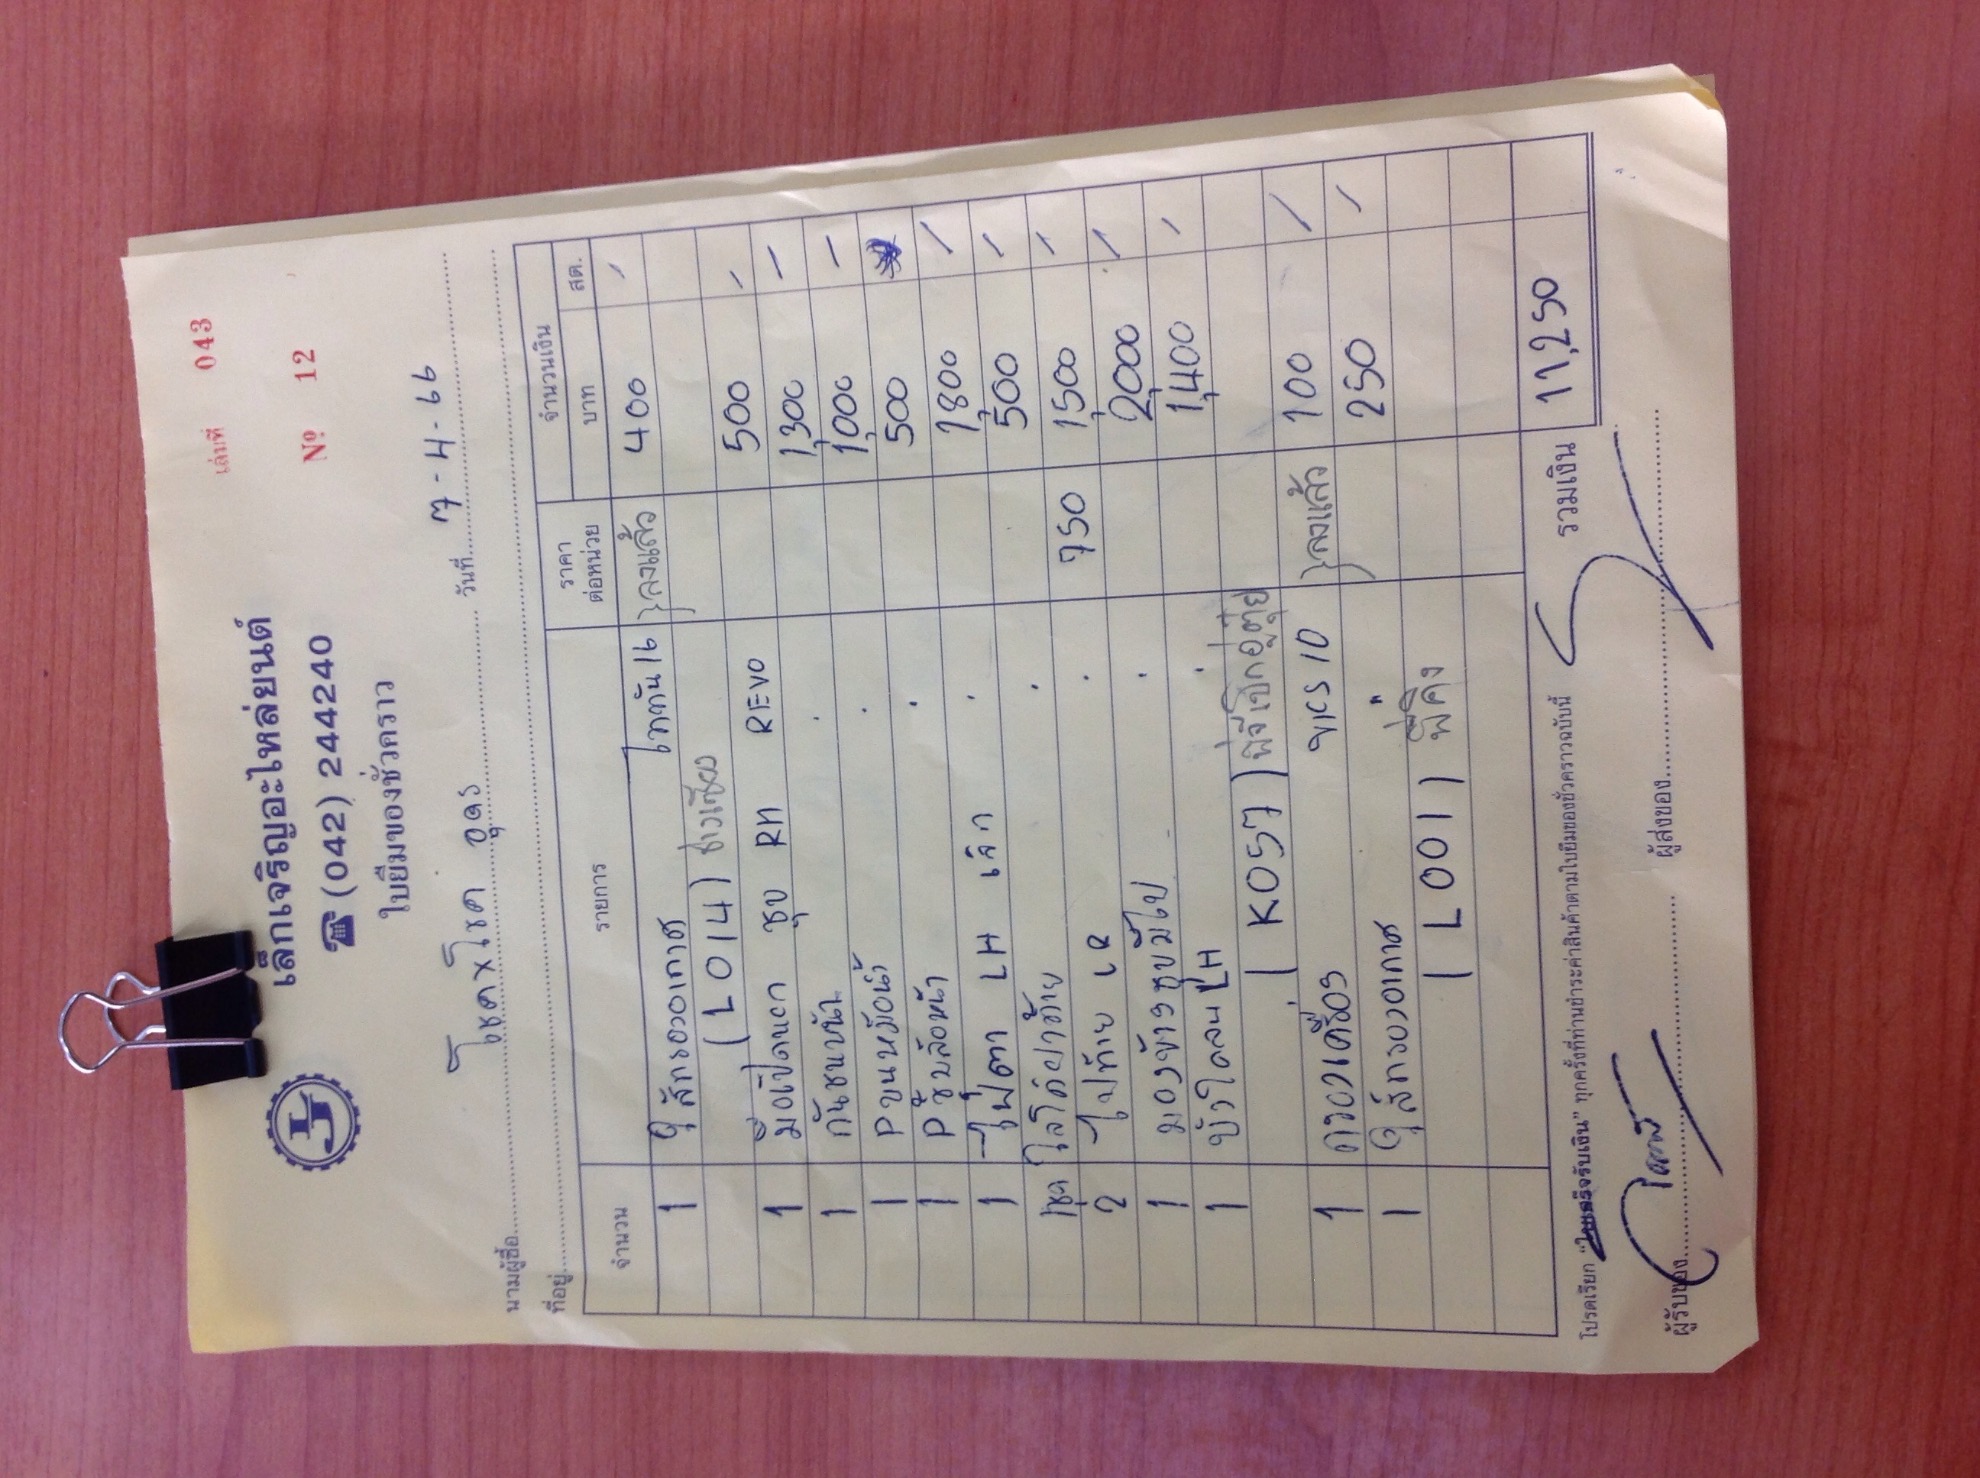 เล่มที่ 043
№ 12
เล็กเจริญอะไหล่ยนต์
☎ (042) 244240
ใบยืมของชั่วคราว
นามผู้ซื้อ โชคxโชค อุดร วันที่ 7-4-66
ที่อยู่
จำนวน รายการ ราคาต่อหน่วย จำนวนเงิน
บาท สต.
1 ดุสักรองอากาศ ไททัน 16 }ลงแล้ว 400 /
(L014) ช่างเซียง
1 มือเปิดนอก ชุบ RH REVO 500 /
1 กันชนหน้า . 1,300 /
1 Pขนหม้อน้ำ . 1,000 /
1 Pซับลังหน้า . 500
1 ไฟตา LH เล็ก . 1,800 /
1ชุด โลโก้ฝาท้าย . 500 /
2 ไฟท้าย LR . 750 1,500 /
1 มองข้างชุบมีไฟ . 2,000 /
1 บังโคลน LH . 1,400 /
(K057) พี่จีเป๊กอู่ตุ๋ย
1 กรองเครื่อง VKS 10 }ลงแล้ว 100 /
1 ดุสักรองอากาศ " 250 /
(L001) พี่คิง
รวมเงิน 11,250
โปรดเรียก “ใบเสร็จรับเงิน” ทุกครั้งที่ท่านชำระค่าสินค้าตามใบยืมของชั่วคราวฉบับนี้
ผู้รับของ ผู้ส่งของ